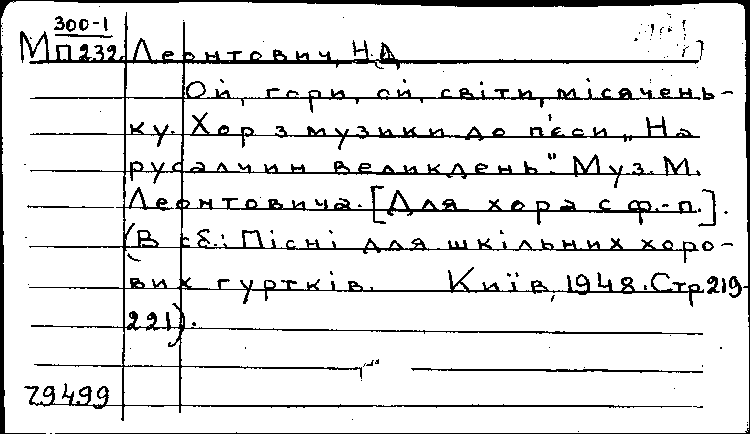 300-1
М П232. Леонтович, Н.Д.
Ой, гори, ой, світи, місячень-
ку. Хор з музики до п'єси „На
русалчин великдень". Муз. М.
Леонтовича. [Для хора с ф.-п.].
(В сб.: Пісні для шкільних хоро-
вих гуртків. Київ, 1948. Стр 219-
221).
79499